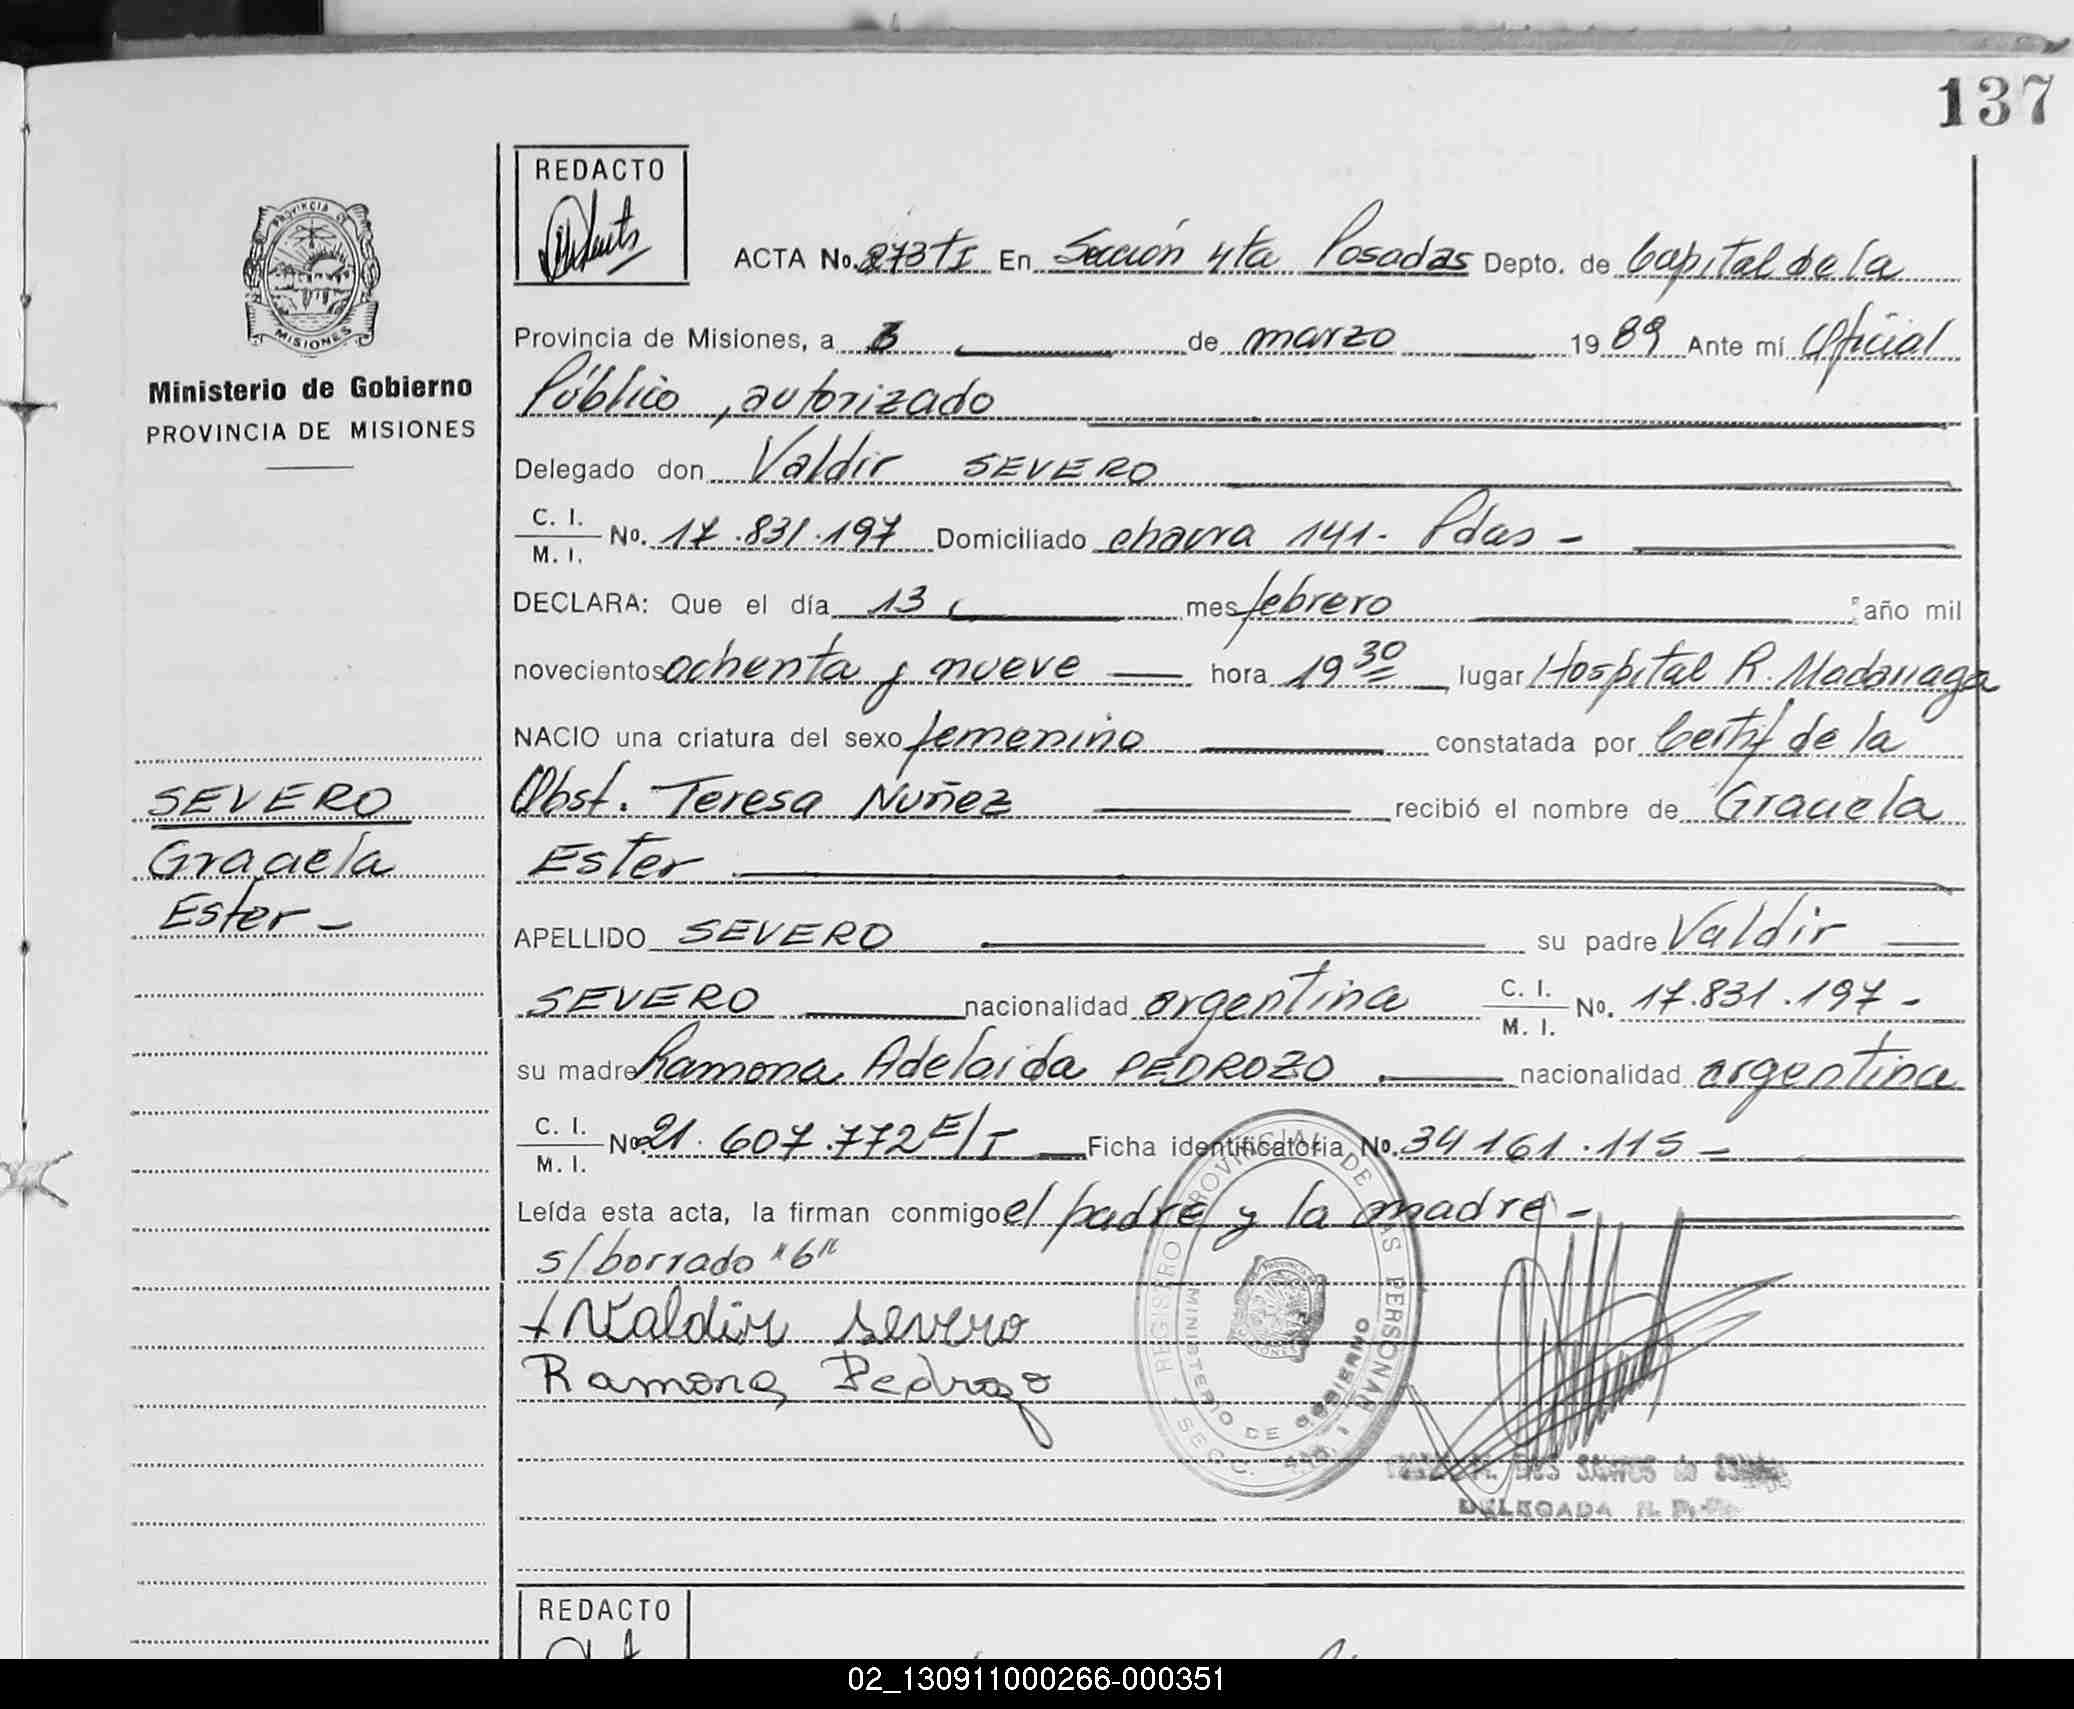 137
REDACTO
PROVINCIA DE
MISIONES
Ministerio de Gobierno
PROVINCIA DE MISIONES
ACTA No. 273 tI En Sección 4ta Posadas Depto. de Capital de la
Provincia de Misiones, a 6 de marzo 1989 Ante mí Oficial
Público, autorizado
Delegado don Valdir SEVERO
C. I.
M. I. No. 17.831.197 Domiciliado chacra 141 - Pdas -
DECLARA: Que el día 13 mes febrero año mil
novecientos ochenta y nueve hora 19 30 lugar Hospital R. Madariaga
NACIO una criatura del sexo femenino constatada por Certif de la
Obst. Teresa Nuñez recibió el nombre de Graciela
Ester
SEVERO
Graciela
Ester -
APELLIDO SEVERO su padre Valdir
SEVERO nacionalidad argentina C. I. M. I. No. 17.831.197 -
su madre Ramona Adelaida PEDROZO nacionalidad argentina
C. I.
M. I. No. 21.607.772 E/T Ficha identificatoria No. 34161.115 -
Leída esta acta, la firman conmigo el padre y la madre -
s/borrado "6"
Valdir Severo
Ramona Pedrozo
REGISTRO PROVINCIAL DE LAS PERSONAS
MINISTERIO DE GOBIERNO
SECC. 4ta.
DOS SANTOS de
DELEGADA R. P.
REDACTO
02_130911000266-000351